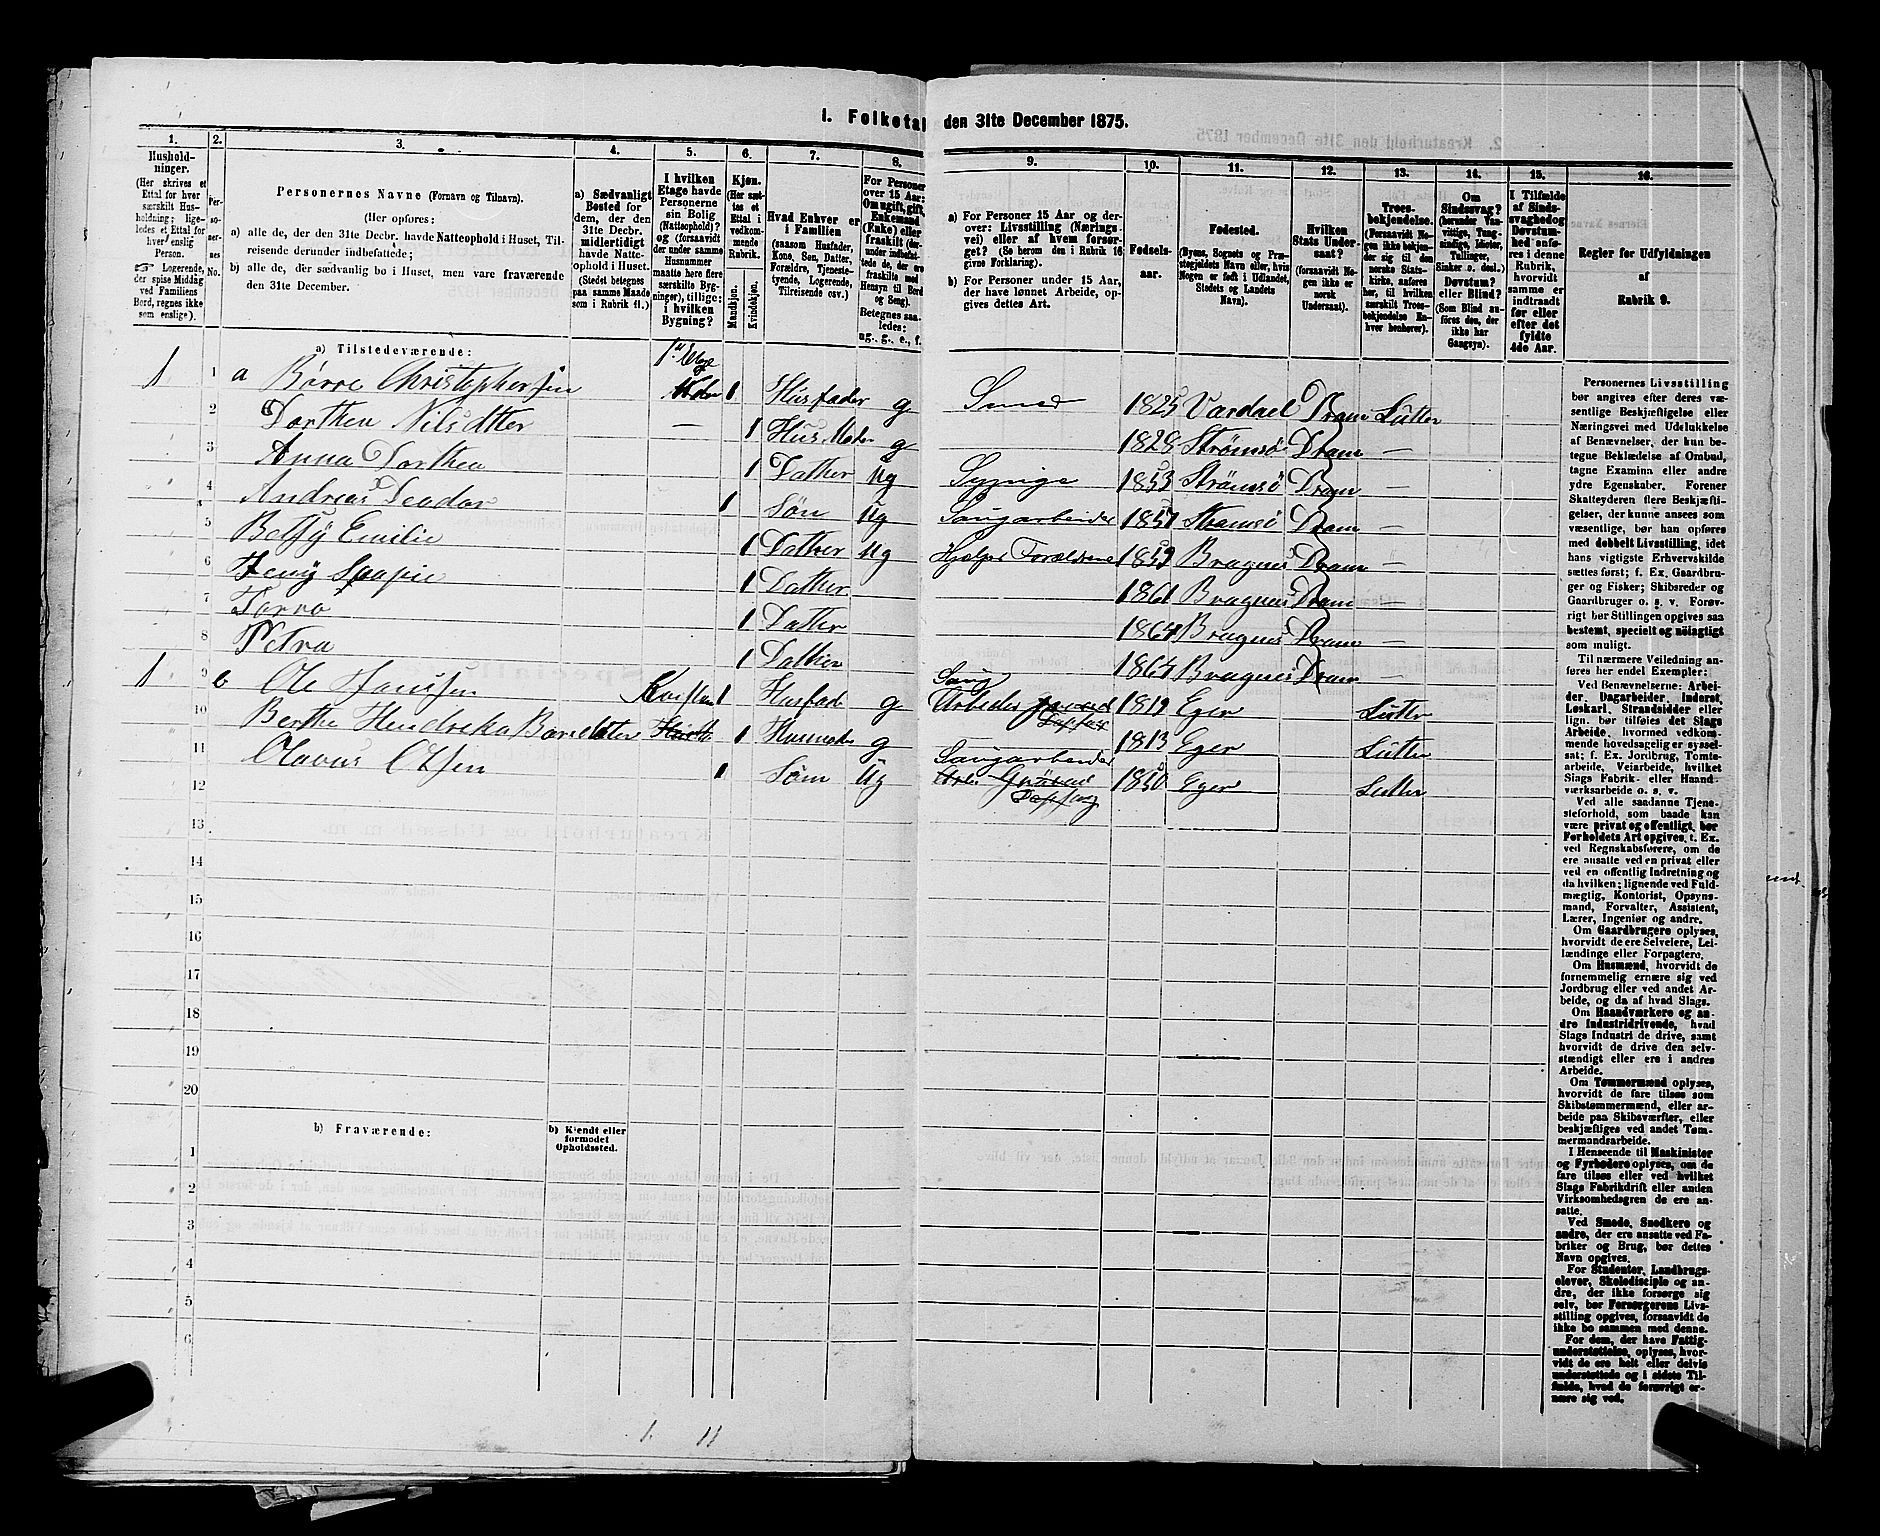 1. Folketal den 31te December 1875.
1. 2. 3. 4. 5. 6. 7. 8. 9. 10. 11. 12. 13. 14. 15. 16.
Hushold-
ninger.
(Her skrives et
Ettal for hver
særskilt Hus-
holdning; lige-
ledes et Ettal for
hver enslig
Person.
☞ Logerende,
der spise Middag
ved Familiens
Bord, regnes ikke
som enslige).
Per-
so-
ner-
nes
No.
Personernes Navne (Fornavn og Tilnavn).
(Her opføres:
a) alle de, der den 31te Decbr. havde Natteophold i Huset, Til-
reisende derunder indbefattede;
b) alle de, der sædvanlig bo i Huset, men vare fraværende
den 31te December.
a) Sædvanligt
Bosted for
dem, der den
31te Decbr.
midlertidigt
havde Natte-
ophold i Huset.
(Stedet betegnes
paa samme Maade
som i Rubrik 11.)
I hvilken
Etage havde
Personerne
sin Bolig
(Natteophold)?
og (forsaavidt
der under samme
Husnummer
maatte høre flere
særskilte Byg-
ninger), tillige:
i hvilken
Bygning?
Kjøn.
(Her sæt-
tes et
Ettal i
vedkom-
mende
Rubrik.
Mandkjøn.
Kvindekjøn.
Hvad Enhver er
i Familien
(saasom Husfader,
Kone, Søn, Datter,
Forældre, Tjeneste-
tyende, Logerende,
Tilreisende osv.)
For Personer
over 15 Aar:
Om ugift, gift,
Enkemand
(Enke) eller
fraskilt (der-
under indbefat-
tede de, der ere
fraskilte med
Hensyn til Bord
og Seng).
Betegnes saa-
ledes:
ug., g., e., f.
a) For Personer 15 Aar og der-
over: Livsstilling (Nærings-
vei) eller af hvem forsør-
get? (Se herom den i Rubrik 16
givne Forklaring).
b) For Personer under 15 Aar,
der have lønnet Arbeide, op-
gives dettes Art.
Fødsels-
aar.
Fødested.
(Byens, Sognets og Præ-
stegjeldets Navn eller, hvis
Nogen er født i Udlandet,
Stedets og Landets
Navn).
Hvilken
Stats Under-
saat?
(forsaavidt No-
gen ikke er
norsk
Undersaat).
Troes-
bekjendelse.
(Forsaavidt No-
gen ikke bekjen-
der sig til den
norske Stats-
kirke, anføres
her, til hvilken
særskilt Troes-
bekjendelse En-
hver henhører).
Om
Sindssvag?
(herunder Van-
vittige, Tung-
sindige, Idioter,
Tullinger,
Sinker o. desl.)
Døvstum?
eller Blind?
(Som Blind an-
føres den, der
ikke har
Gangsyn).
I Tilfælde
af Sinds-
svaghed og
Døvstum-
hed anfø-
res i denne
Rubrik,
hvorvidt
samme er
indtraadt
før eller
efter det
fyldte
4de Aar.
Regler for Udfyldningen
af
Rubrik 9.
a) Tilstedeværende:
1ste Etage
1 1 a Børre Christophersen 1 Husfader g Smed 1825 Vardael Dram Lutter
2 Dorthea Nilsdtter — 1 Hus Moder g 1828 Strømsø Dram —
3 Anna Dorthea 1 Datter Ug Syrige 1853 Strømsø Dram —
4 Andreas Teodor 1 Søn Ug Saugarbeider 1857 Strømsø Dram —
5 Betsÿ Emilie 1 Datter Ug Hjelper Forældrene 1859 Bragnes Dram —
6 Jenÿ Soapie 1 Datter 1861 Bragnes Dram —
7 Torra 1 Datter 1864 Bragnes Dram —
8 Petra 1 Datter 1864 Bragnes Dram —
1 9 b Ole Hansen 1 Husfade g Saug Arbeider 1819 Eger Lutter
10 Berthe Hendreka 1 Husmoder g 1813 Eger Lutter
11 Olavus Olsen 1 Søn Ug Saugarbeider 1850 Eger Lutter
12
13
14
15
16
17
18
19
20
b) Fraværende:
b) Kjendt eller
formodet
Opholdssted.
1
2
3
4
5
6
1. 11
Personernes Livsstilling
bør angives efter deres væ-
sentlige Beskjæftigelse eller
Næringsvei med Udelukkelse
af Benævnelser, der kun be-
tegne Beklædelse af Ombud,
tagne Examina eller andre
ydre Egenskaber. Forener
Skatteyderen flere Beskjæfti-
gelser, der kunne ansees som
væsentlige, bør han opføres
med dobbelt Livsstilling, idet
hans vigtigste Erhvervskilde
sættes først; f. Ex. Gaardbru-
ger og Fisker; Skibsreder og
Gaardbruger o. s. v. Forøv-
rigt bør Stillingen opgives saa
bestemt, specielt og nøiagtigt
som muligt.
Til nærmere Veiledning an-
føres her endel Exempler:
Ved Benævnelserne: Arbei-
der, Dagarbeider, Inderst,
Løskarl, Strandsidder eller
lign. bør tilføies det Slags
Arbeide, hvormed vedkom-
mende hovedsagelig er syssel-
sat; f. Ex. Jordbrug, Tomte-
arbeide, Veiarbeide, hvilket
Slags Fabrik- eller Haand-
værksarbeide o. s. v.
Ved alle saadanne Tjene-
steforhold, som baade kan
være privat og offentligt, bør
Forholdets Art opgives, t. Ex.
ved Regnskabsførere, om de
ere ansatte ved en privat eller
ved en offentlig Indretning og
da hvilken; lignende ved Fuld-
mægtig, Kontorist, Opsyns-
mand, Forvalter, Assistent,
Lærer, Ingeniør og andre.
Om Gaardbrugere oplyses,
hvorvidt de ere Selveiere, Lei-
lændinge eller Forpagtere.
Om Husmænd, hvorvidt de
fornemmelig ernære sig ved
Jordbrug eller ved andet Ar-
beide, og da af hvad Slags.
Om Haandværkere og an-
dre Industridrivende, hvad
Slags Industri de drive, samt
hvorvidt de drive den selv-
stændigt eller ere i andres
Arbeide.
Om Tømmermænd oplyses,
hvorvidt de fare tilsøs som
Skibstømmermænd, eller ar-
beide paa Skibsværfter, eller
beskjæftiges ved andet Tøm-
mermandsarbeide.
I Henseende til Maskinister
og Fyrbødere oplyses, om de
fare tilsøs eller ved hvilket
Slags Fabrikdrift eller anden
Virksomhedsgren de ere an-
satte.
Ved Smede, Snedkere og
andre, der ere ansatte ved Fa-
briker og Brug, bør dettes
Navn opgives.
For Studenter, Landbrugs-
elever, Skoledisciple og an-
dre, der ikke forsørge sig
selv, bør Forsørgerens Livs-
stilling opgives, forsaavidt de
ikke bo sammen med denne.
For dem, der have Fattig-
understøttelse, oplyses, hvor-
vidt de ere helt eller delvis
understøttede og i sidste Til-
fælde, hvad de forøvrigt er-
nære sig ved.